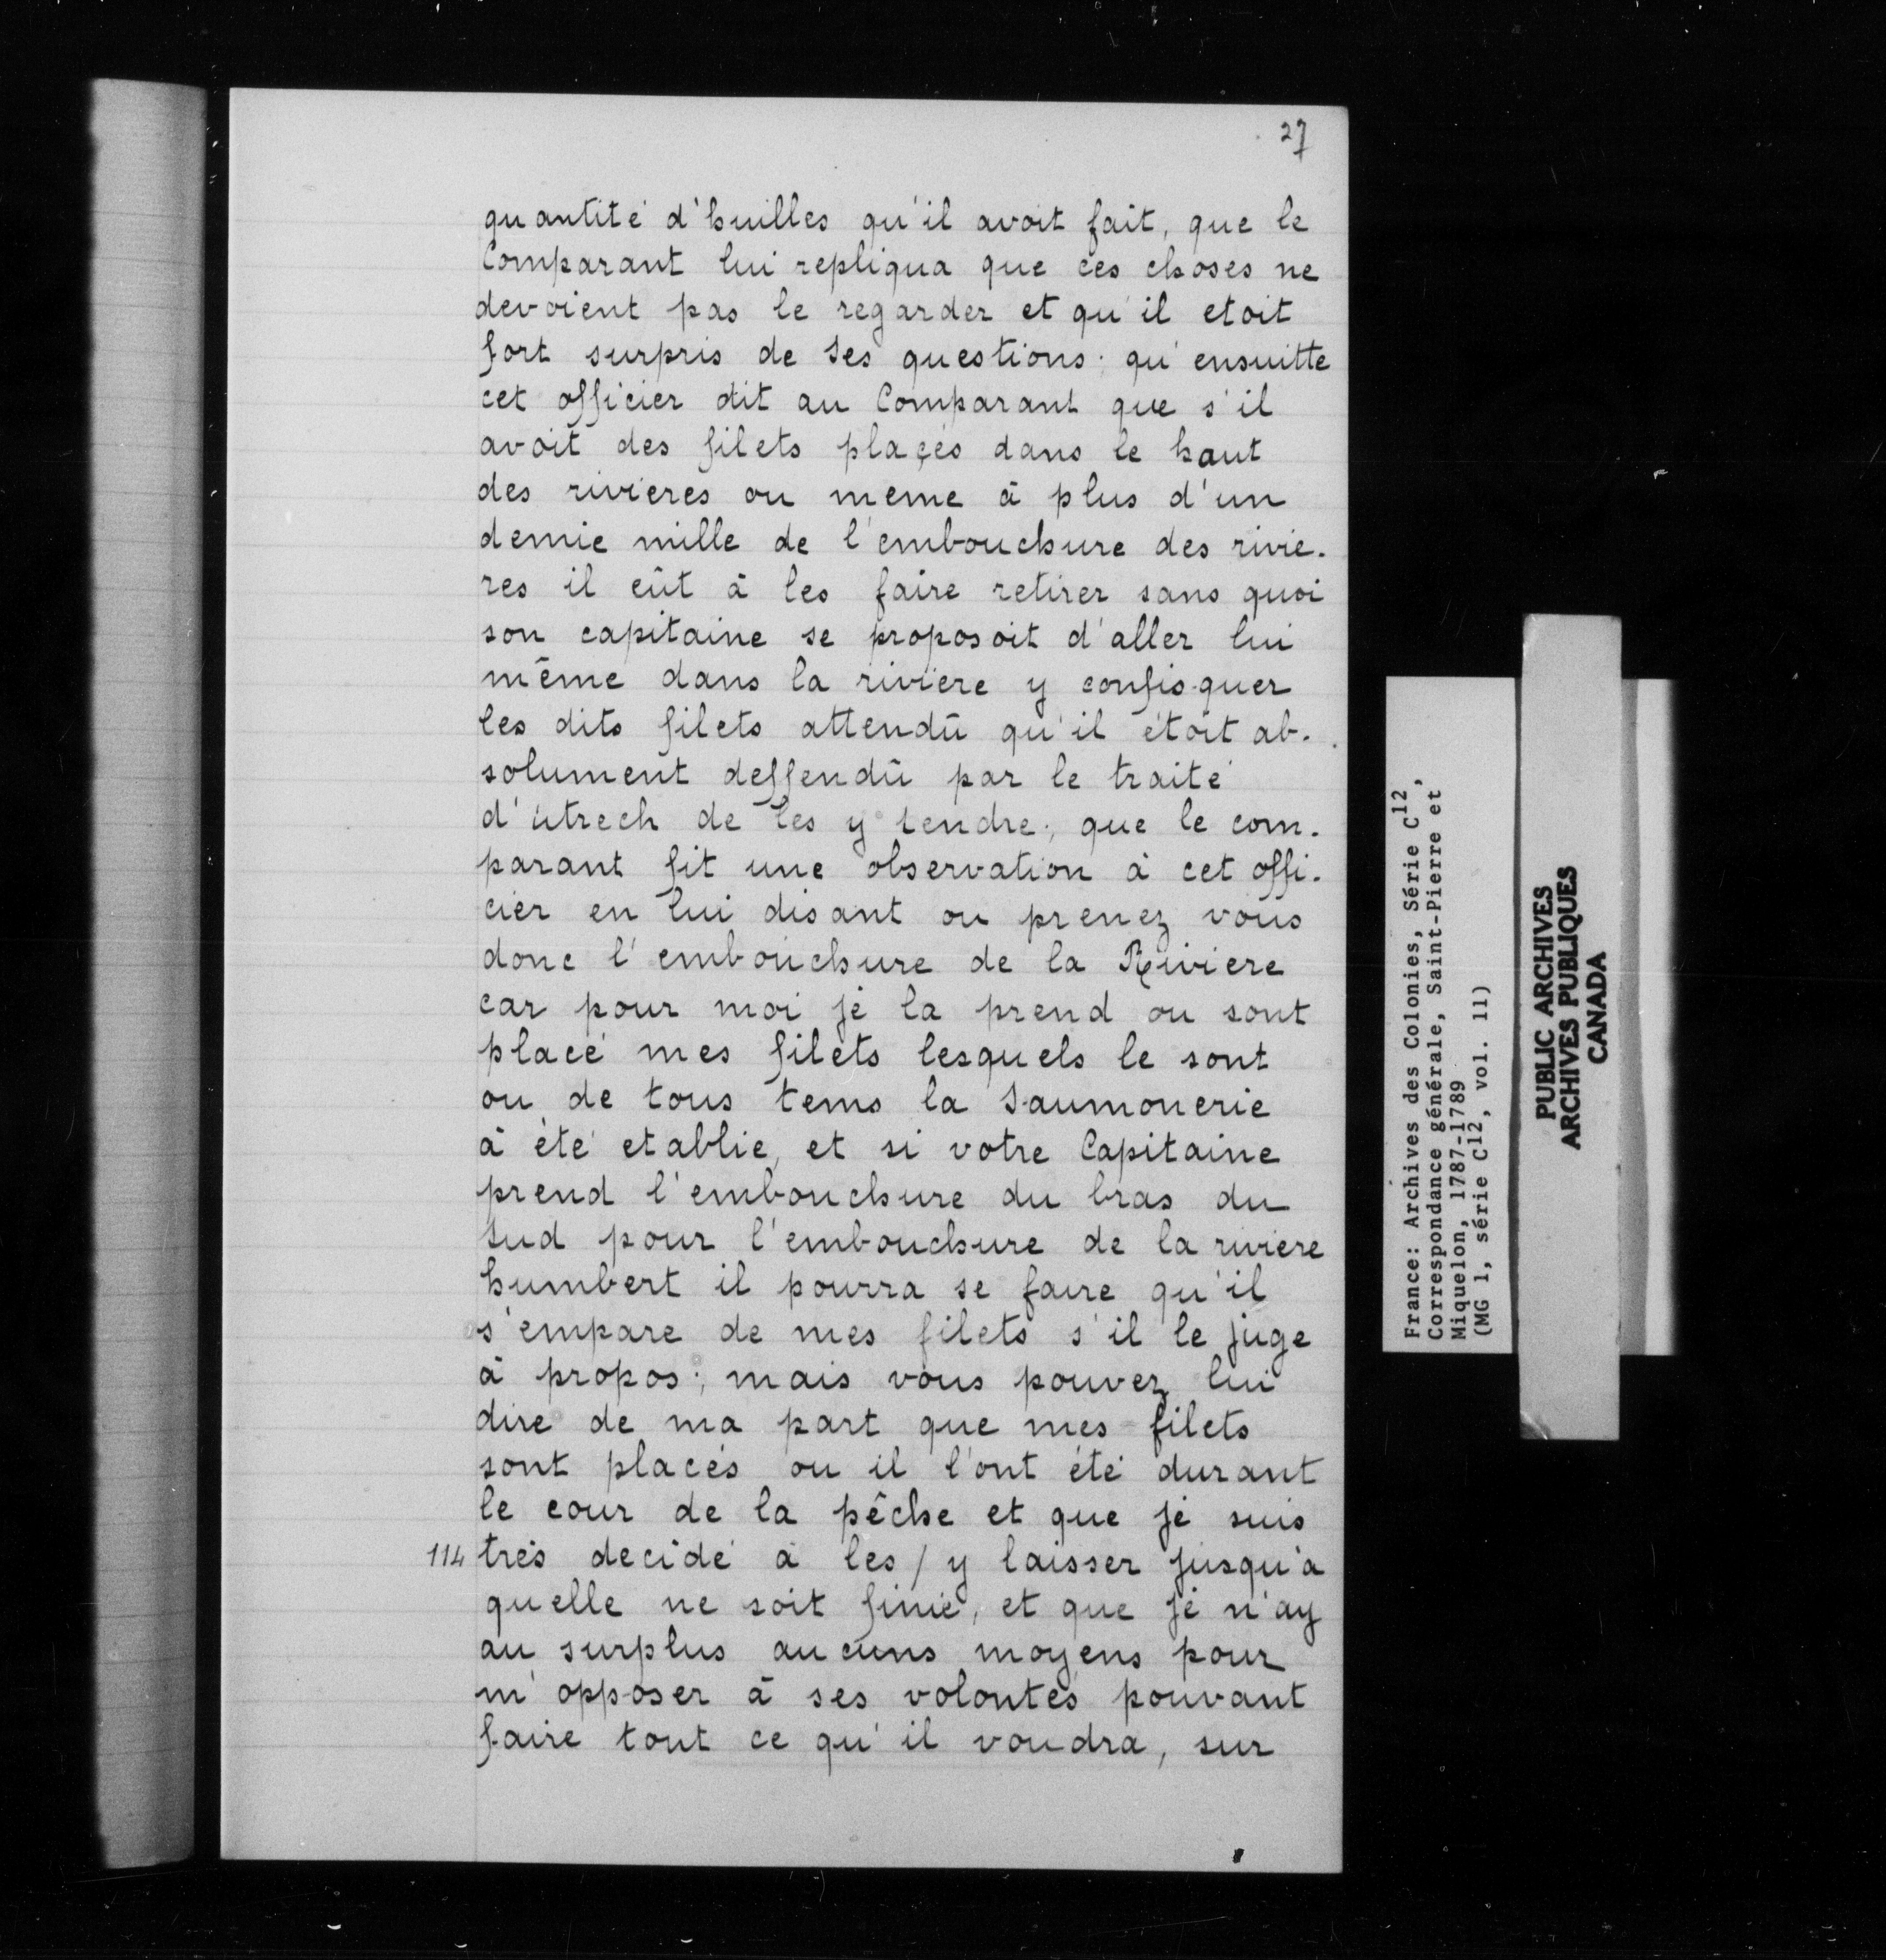 27
quantité d'huilles qu'il avoit fait, que le
Comparant lui repliqua que ces choses ne
devoient pas le regarder et qu'il etoit
fort surpris de ses questions; qu'ensuitte
cet officier dit au Comparant que s'il
avoit des filets plaçés dans le haut
des rivieres ou meme à plus d'un
demie mille de l'embouchure des rivie-
res il eût à les faire retirer sans quoi
son capitaine se proposoit d'aller lui
même dans la riviere y confisquer
les dits filets attendû qu'il étoit ab-
solument deffendû par le traité
d'utrech de les y tendre; que le com-
parant fit une observation à cet offi-
cier en lui disant ou prenez vous
donc l'embouchure de la Riviere
car pour moi je la prend ou sont
placé mes filets lesquels le sont
ou de tous tems la saumonerie
à été etablie, et si votre Capitaine
prend l'embouchure du bras du
sud pour l'embouchure de la riviere
humbert il pourra se faire qu'il
s'empare de mes filets s'il le juge
à propos; mais vous pouvez lui
dire de ma part que mes filets
sont placés ou il l'ont été durant
le cour de la pêche et que je suis
114 trés decidé à les / y laisser jusqu'a
quelle ne soit finie, et que je n'ay
au surplus aucuns moyens pour
m'opposer à ses volontés pouvant
faire tout ce qu'il voudra, sur
France: Archives des Colonies, Série C12,
Correspondance générale, Saint-Pierre et
Miquelon, 1787-1789
(MG 1, série C12, vol. 11)
PUBLIC ARCHIVES
ARCHIVES PUBLIQUES
CANADA